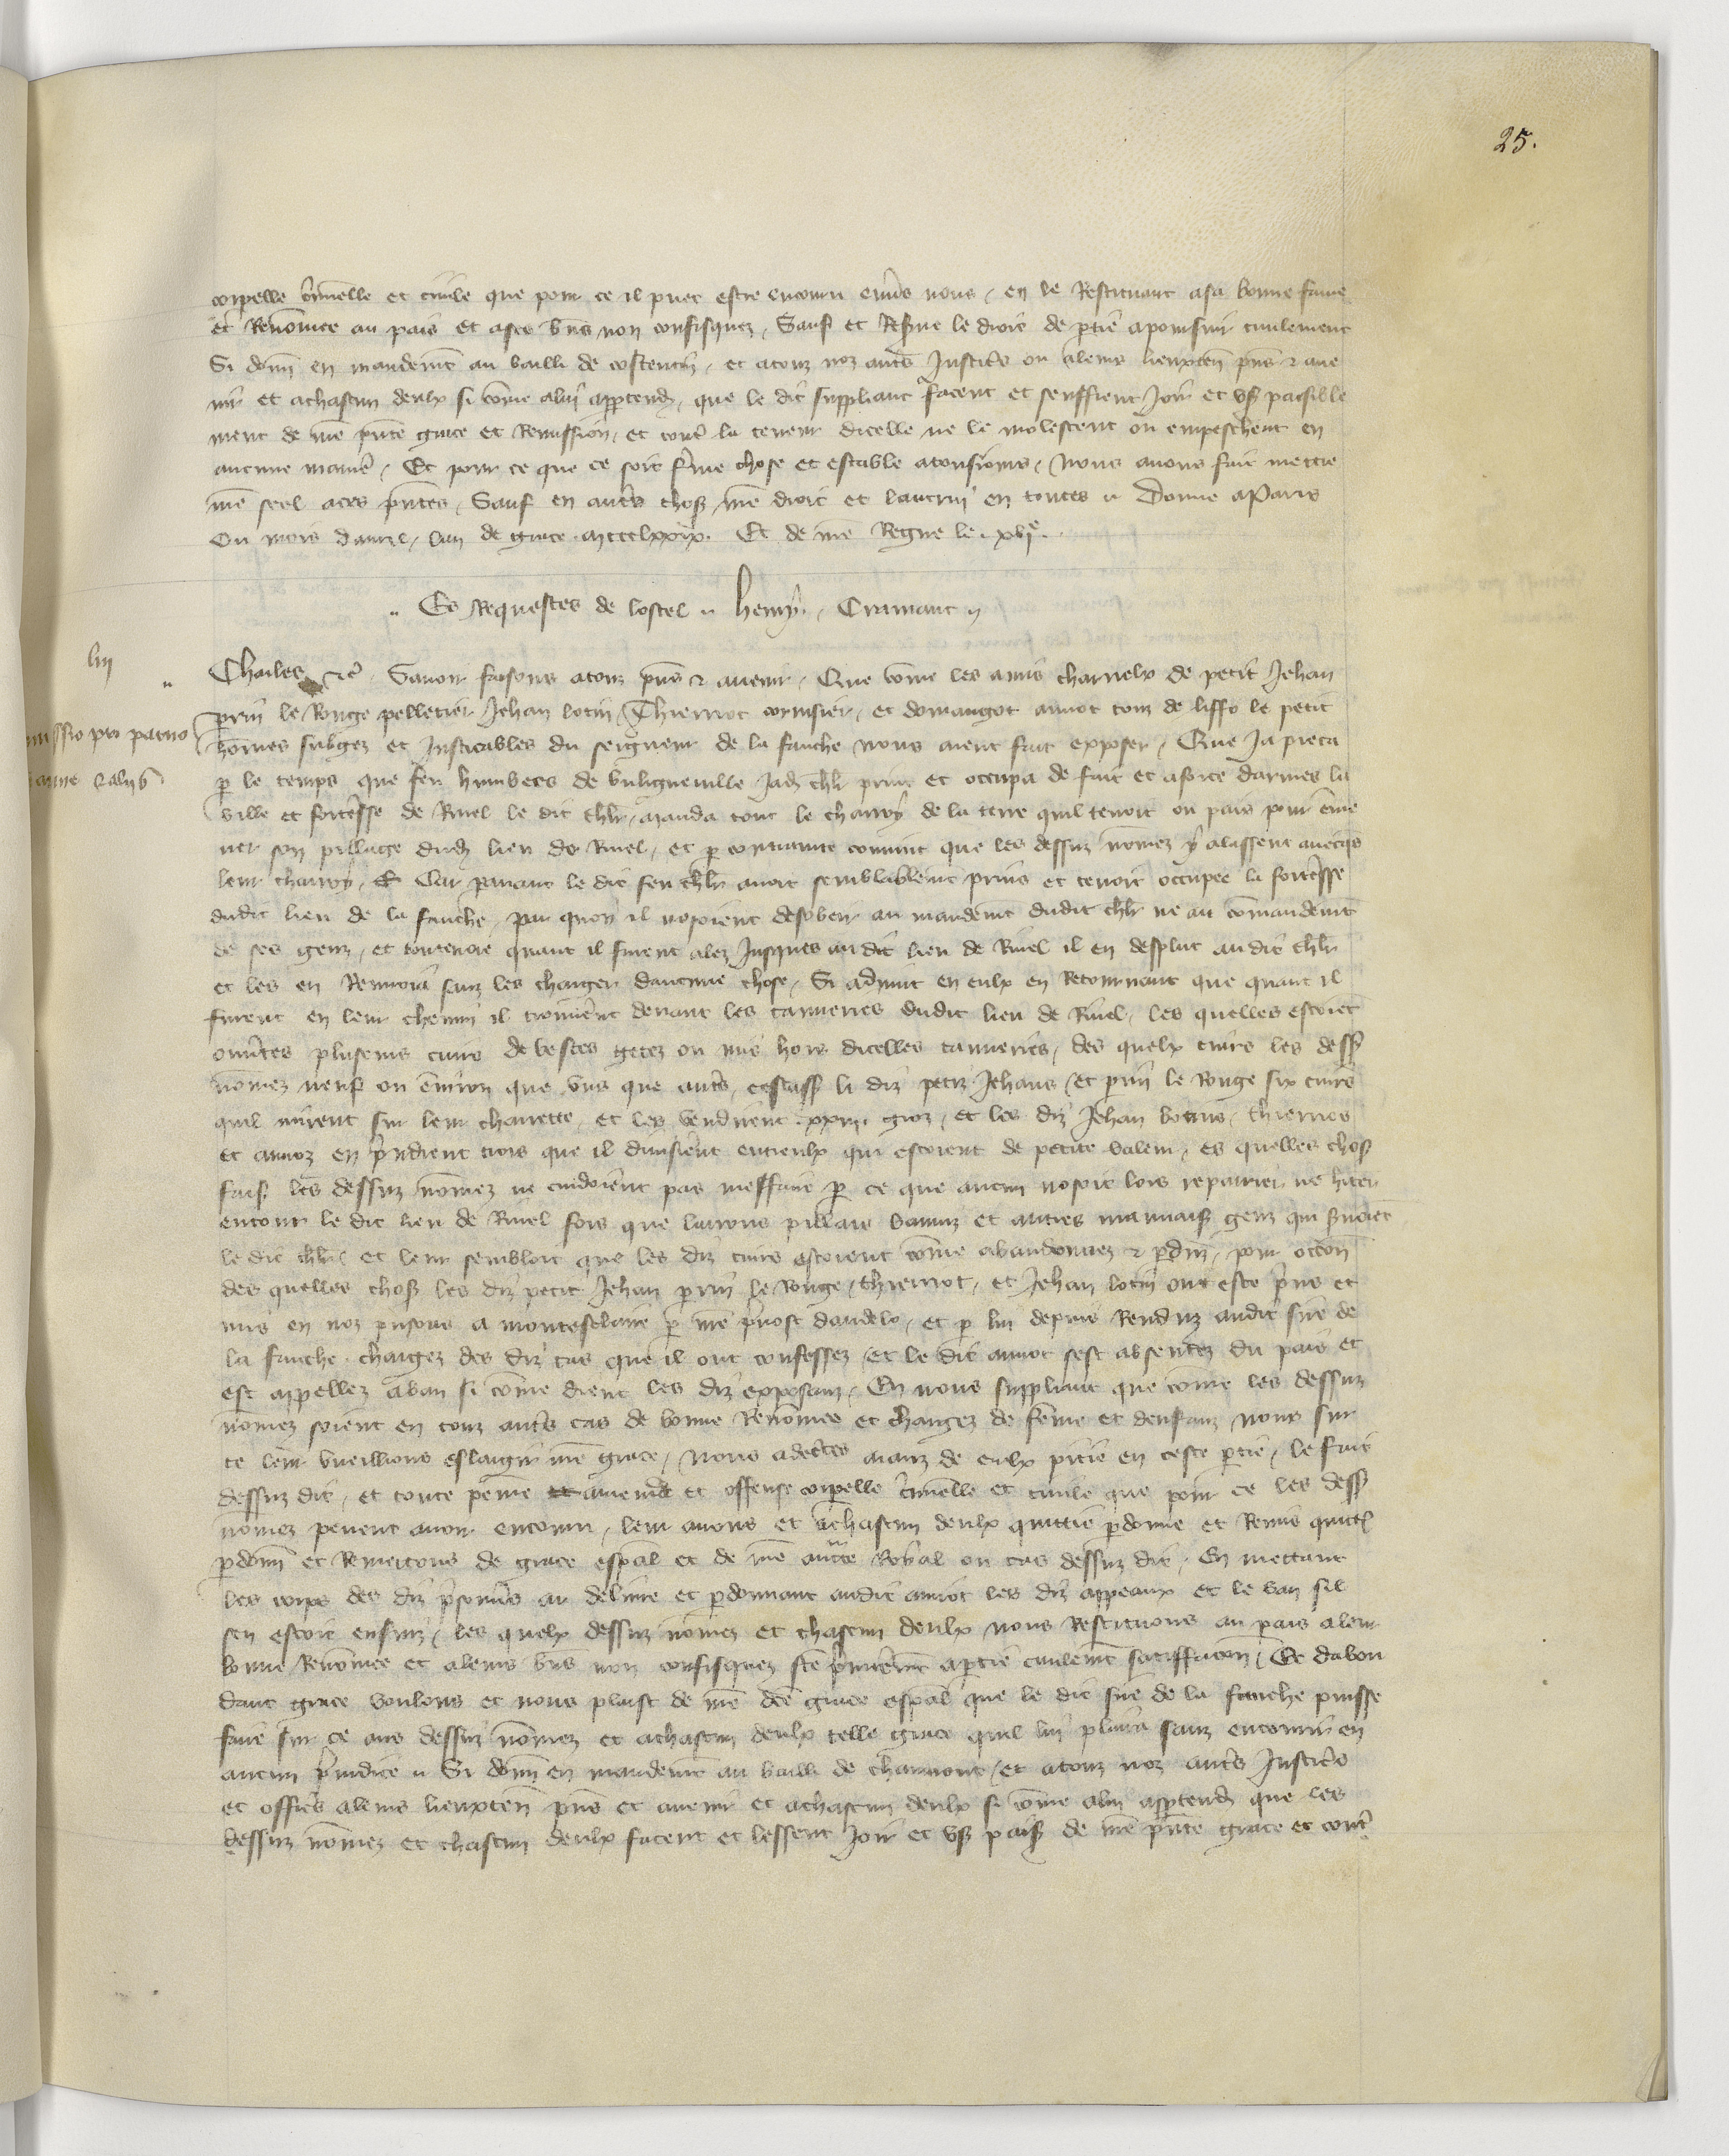 25.
corpelle c'minelle et civile que pour ce il puet estre encouru env's nous, en le Restituant a sa bonne fame
et Renommee au pais et a ses b'ns non confisquez, Sauf et Reserve le droit de p'tie a poursuir civilement
Si donn en mandemt au bailli de costentin, et a touz noz aut's Justic's ou a leurs lieuxten p'ns & ave
nir et a chascun deulx si come a lui app'tendr, que le dit suppliant facent et seuffrent Joir et us paisible
ment de n're p'nte grace et Remission, et cont' la teneur dicelle ne le molestent ou empeschent en
aucune manie', Et pour ce que ce soit f'me chose et estable a tousjours, Nous avons fait mettre
n're seel a ces p'ntes, Sauf en aut's chos n're droit et lautruy en toutes Donne a Paris
Ou mois davril, lan de grace mccclxxix. Et de n're Regne le xvje.
Es Requestes de lostel Henry. Cramant
liiij
missio pro parvo
Johanne & aliis
Charles &c. Savoir faisons a touz p'ns & avenir, Que come les amis charnelx de petit Jehan
perrin le Rouge pelletier Jehan lotin, Thierriot cornisier, et domangot amiot touz de liffo le petit
homes subgez et Justicables du seigneur de la fauche nous aient fait exposer, Que Ja pieca
p le temps que feu humbers de buligneville Jad chlr print et occupa de fait et a force darmes la
ville et fort'esse de Rinel le dit chlr manda tout le charroy de la terre quil tenoit ou pais pour enme
ner son pillage dud lieu de Rinel, et p contrainte convint que les dessuz nomez y alassent avecq's
leur charroy, Et Car p'avant le dit feu chlr avoit semblablemt prins et tenoit occupee la fort'esse
dudit lieu de la fauche, par quoy il nosoient desobeir au mandemt dudit chlr ne au comandemt
de ses genz, et toutevoie quant il furent alez Jusques au dit lieu de Rinel il en desplut audit chlr
et les en Renvoia sanz les charger daucune chose, Si advint en eulx en Retournant que quant il
furent en leur chemin il trouve'nt devant les tanneries dudit lieu de Rinel, les quelles estoiet
ouv'tes plusieurs cuirs de bestes getez ou mis hors dicelles tanneries, des quelx cuirs les dess
nomez neuf ou environ que uns que aut's, cestass li diz petiz Jehans et p'rin le Rouge six cuirs
quil mirent sur leur charrette, et les vendirent xxiiij. groz, et les diz Jehan lotins, thierrios
et amioz en p'ndrent trois que il divisie'nt entreulx qui estoient de petite valeur, es quelles chos
fais les dessuz nomez ne cuidoient pas meffaire p ce que aucun nosoit lors repairier ne hiter
entour le dit lieu de Rinel fors que larrons pillars baniz et autres mauvais genz qui s'voiet
le dit chlr, et leur sembloit que les diz cuirs estoient come abandonnez & p'duz, pour occon
des quelles chos les diz petit Jehan p'rin le Rouge, thierriot, et Jehan lotin ont este p'ns et
mis en noz prisons a montesclaire p n're p'vost dandelo, et p lui depuis Renduz audit sire de
la fauche chargez des diz cas que il ont confessez, et le dit amiot sest absentez du pais et
est appellez a ban si come dient les diz exposanz, En nous suppliant que come les dessuz
nomez soient en touz aut's cas de bonne Renomee et chargez de feme et denfanz, nous sur
ce leur vueillions eslargir n're grace, Nous adecertes aianz de eulx pitie en ceste p'tie, le fait
dessuz dit, et toute peine et amende et offense corpelle c'minelle et civile que pour ce les dess
nomez pevent avoir encouru, leur avons et a chascun deulx quittie p'donne et Remis quitt
p'donn et Remettons de grace esp'al et de n're aucte Royal ou cas dessuz dit, En mettant
les corps des diz p'sonn's au delivre et p'donnant audit amiot les diz appeaux et le ban sil
sen estoit ensuiz, les quelx dessuz nomez et chascun deulx nous Restituons au pais a leur
bonne Renomee et a leurs b'ns non confisquez fte p'mie'mt a p'tie civilemt satiffacon, Et dabon
dant grace voulons et nous plaist de n're dte grace esp'al que le dit sire de la fauche puisse
faire sur ce aus dessuz nomez et a chascun deulx telle grace quil lui plaira sanz encourir en
aucun p'judice Si donn en mandemt au bailli de chaumont, et a touz noz aut's Justic's
et offic's a leurs lieuxten p'ns et avenir et a chascun deulx si come a lui app'tendr que les
dessuz nomez et chascun deulx facent et lessent Joir et us pais de n're p'nte grace et cont'